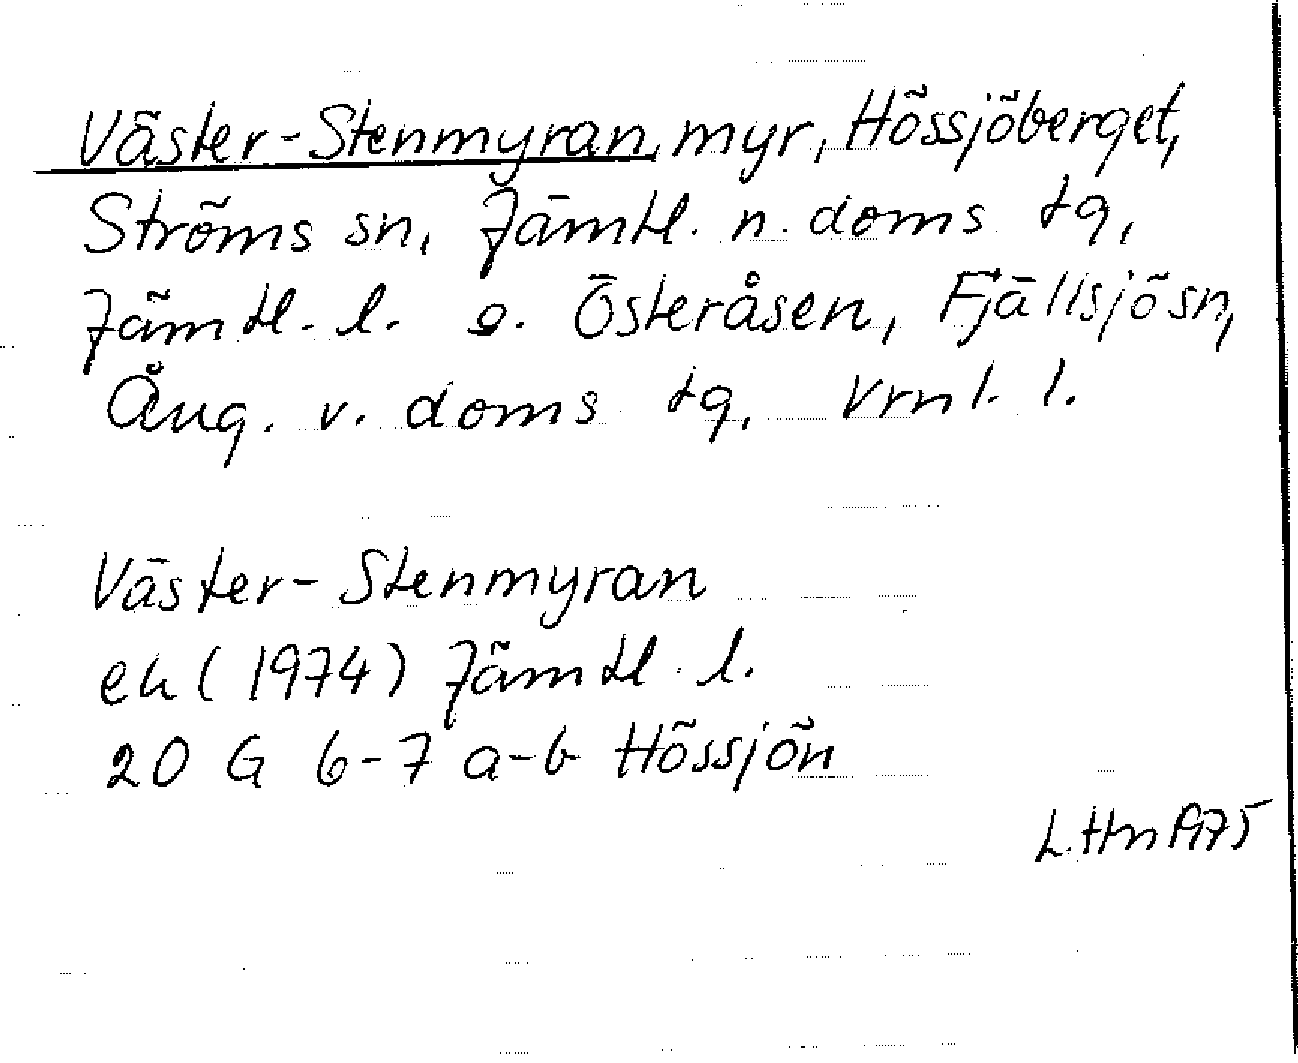 Väster-Stenmyran, myr, Hössjöberget,
Ströms sn, Jämtl. n. doms tg,
Jämtl. l. o. Österåsen, Fjällsjö sn,
Ång. v. doms tg, Vrnl. l.
Väster-Stenmyran
ek (1974) Jämtl. l.
20 G 6-7 a-b Hössjön
L.Hn 1975